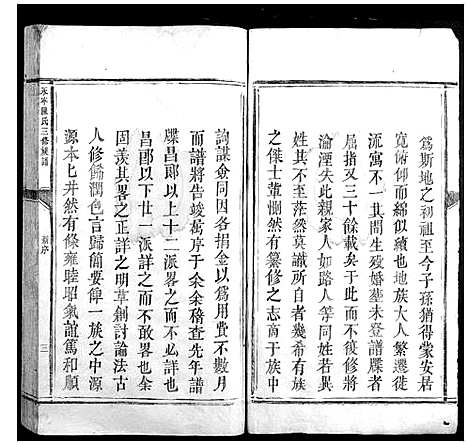 爲斯地之初祖至今子孫猶得蒙安居
寛俯仰而綿似續也地族大人繁遷徙
流寓不一其間生歿婚墓未登譜牒者
屈指又三十餘載矣于此而不復修將
淪湮失此親家人如路人等同姓若異
姓其不至茫然莫識所自者幾希矣族
之傑士輩惻然有纂修之志商于族中
詢謀僉同因各捐金以爲用費不數月
而譜將告竣喬序于余余稽查先年譜
牒昌郎以上十二派畧之而不必詳也
昌郎以下廿一派詳之而不敢畧也余
因羨其畧之正詳之明草創討論法古
人修餙潤色言歸簡要俾一族之中源
源本七井然有條雍睦昭氣誼篤和順
陳氏三修族譜
序
三